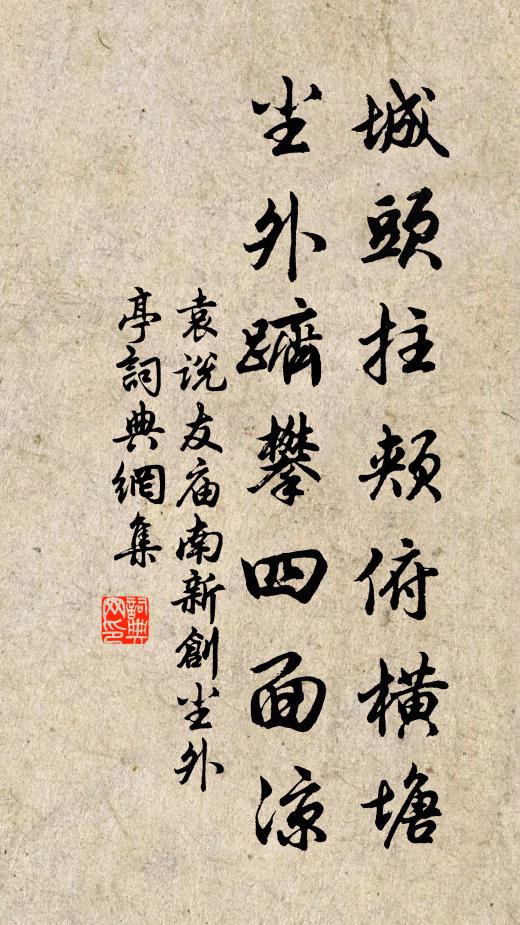 城頭拄頰俯橫塘
尘外躋攀四面涼
袁説友庙南新創尘外
亭詞典網集
詞典網印